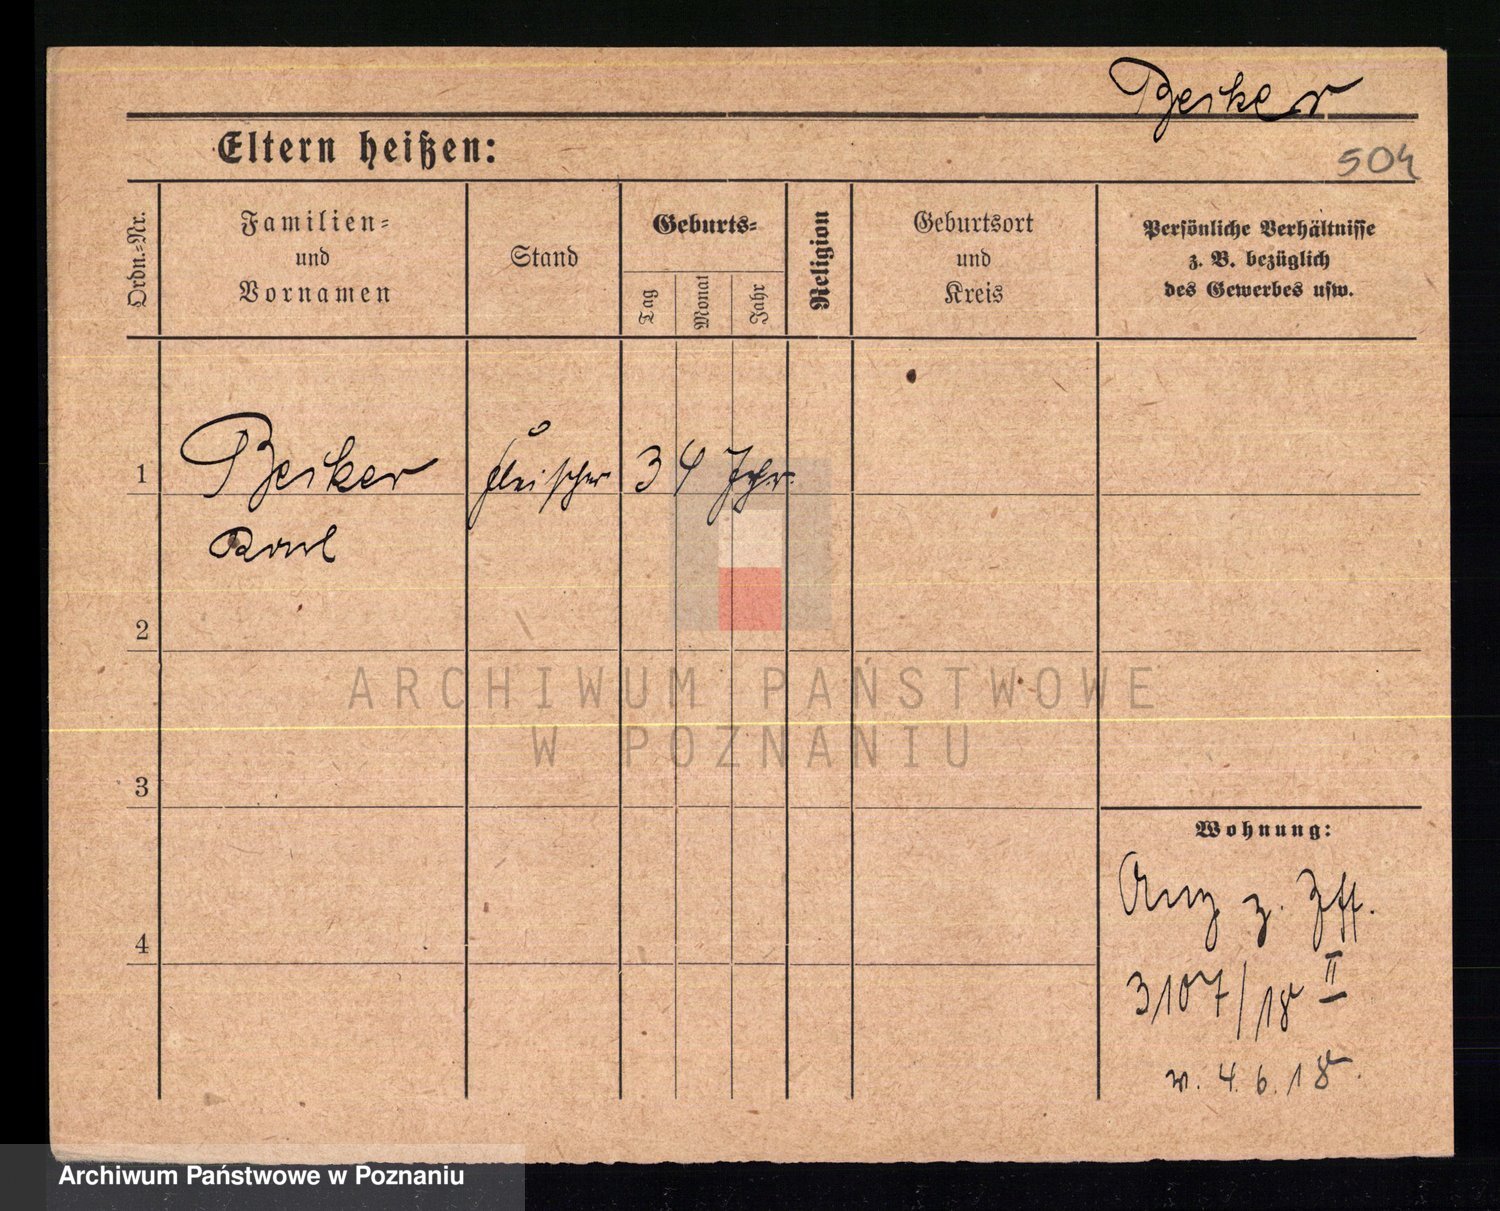 Beiker
Eltern heißen:
504
Ordn.-Nr.
Familien-
und
Vornamen
Stand
Geburts-
Tag
Monat
Jahr
Religion
Geburtsort
und
Kreis
Persönliche Verhältnisse
z. B. bezüglich
des Gewerbes usw.
1 Beiker Fleischer 34 Jhr.
Karl
2
3
Wohnung:
4
z.
3107/18 II
v. 4.6.18.
ARCHIWUM PAŃSTWOWE
W POZNANIU
Archiwum Państwowe w Poznaniu